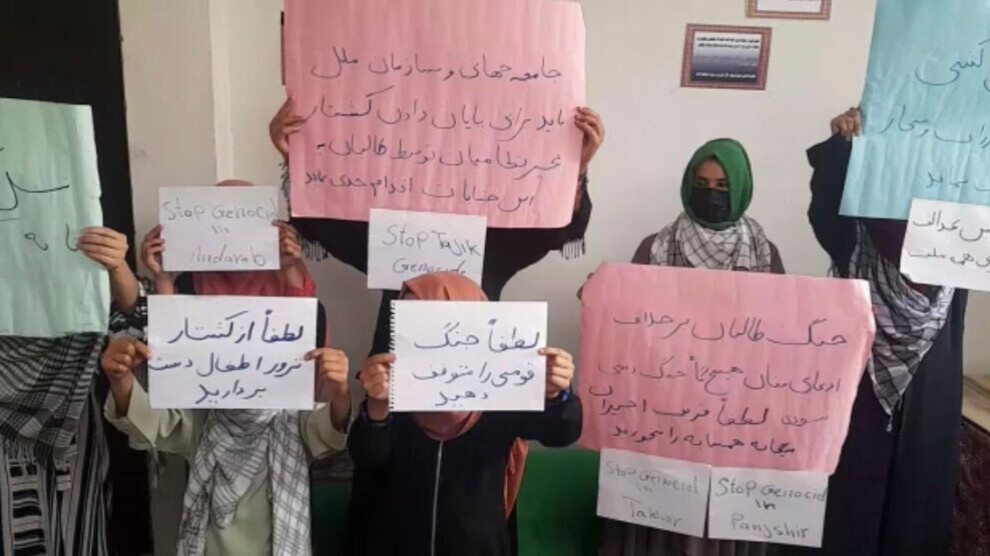 جامعه جهانی و سازمان ملل
باید برای پایان دادن کشتار
غیر نظامیان توسط طالبان به
این جنایات اقدام جدی نماید
Stop Genocid
in
Andarab
Stop Tajik
Genocide
لطفاً از کشتار
ترور اطفال دست
بردارید
لطفاً جنگ
قومی را متوقف
دهید
جنگ طالبان بر خلاف
ادعای شان هیچگاه جنگ دینی
نبوده لطفاً فریب
همسایه را نخورید
Stop Genocid
in
Takhar
Stop Genocid
in
Panjshir
نسل
کشی
عدالت